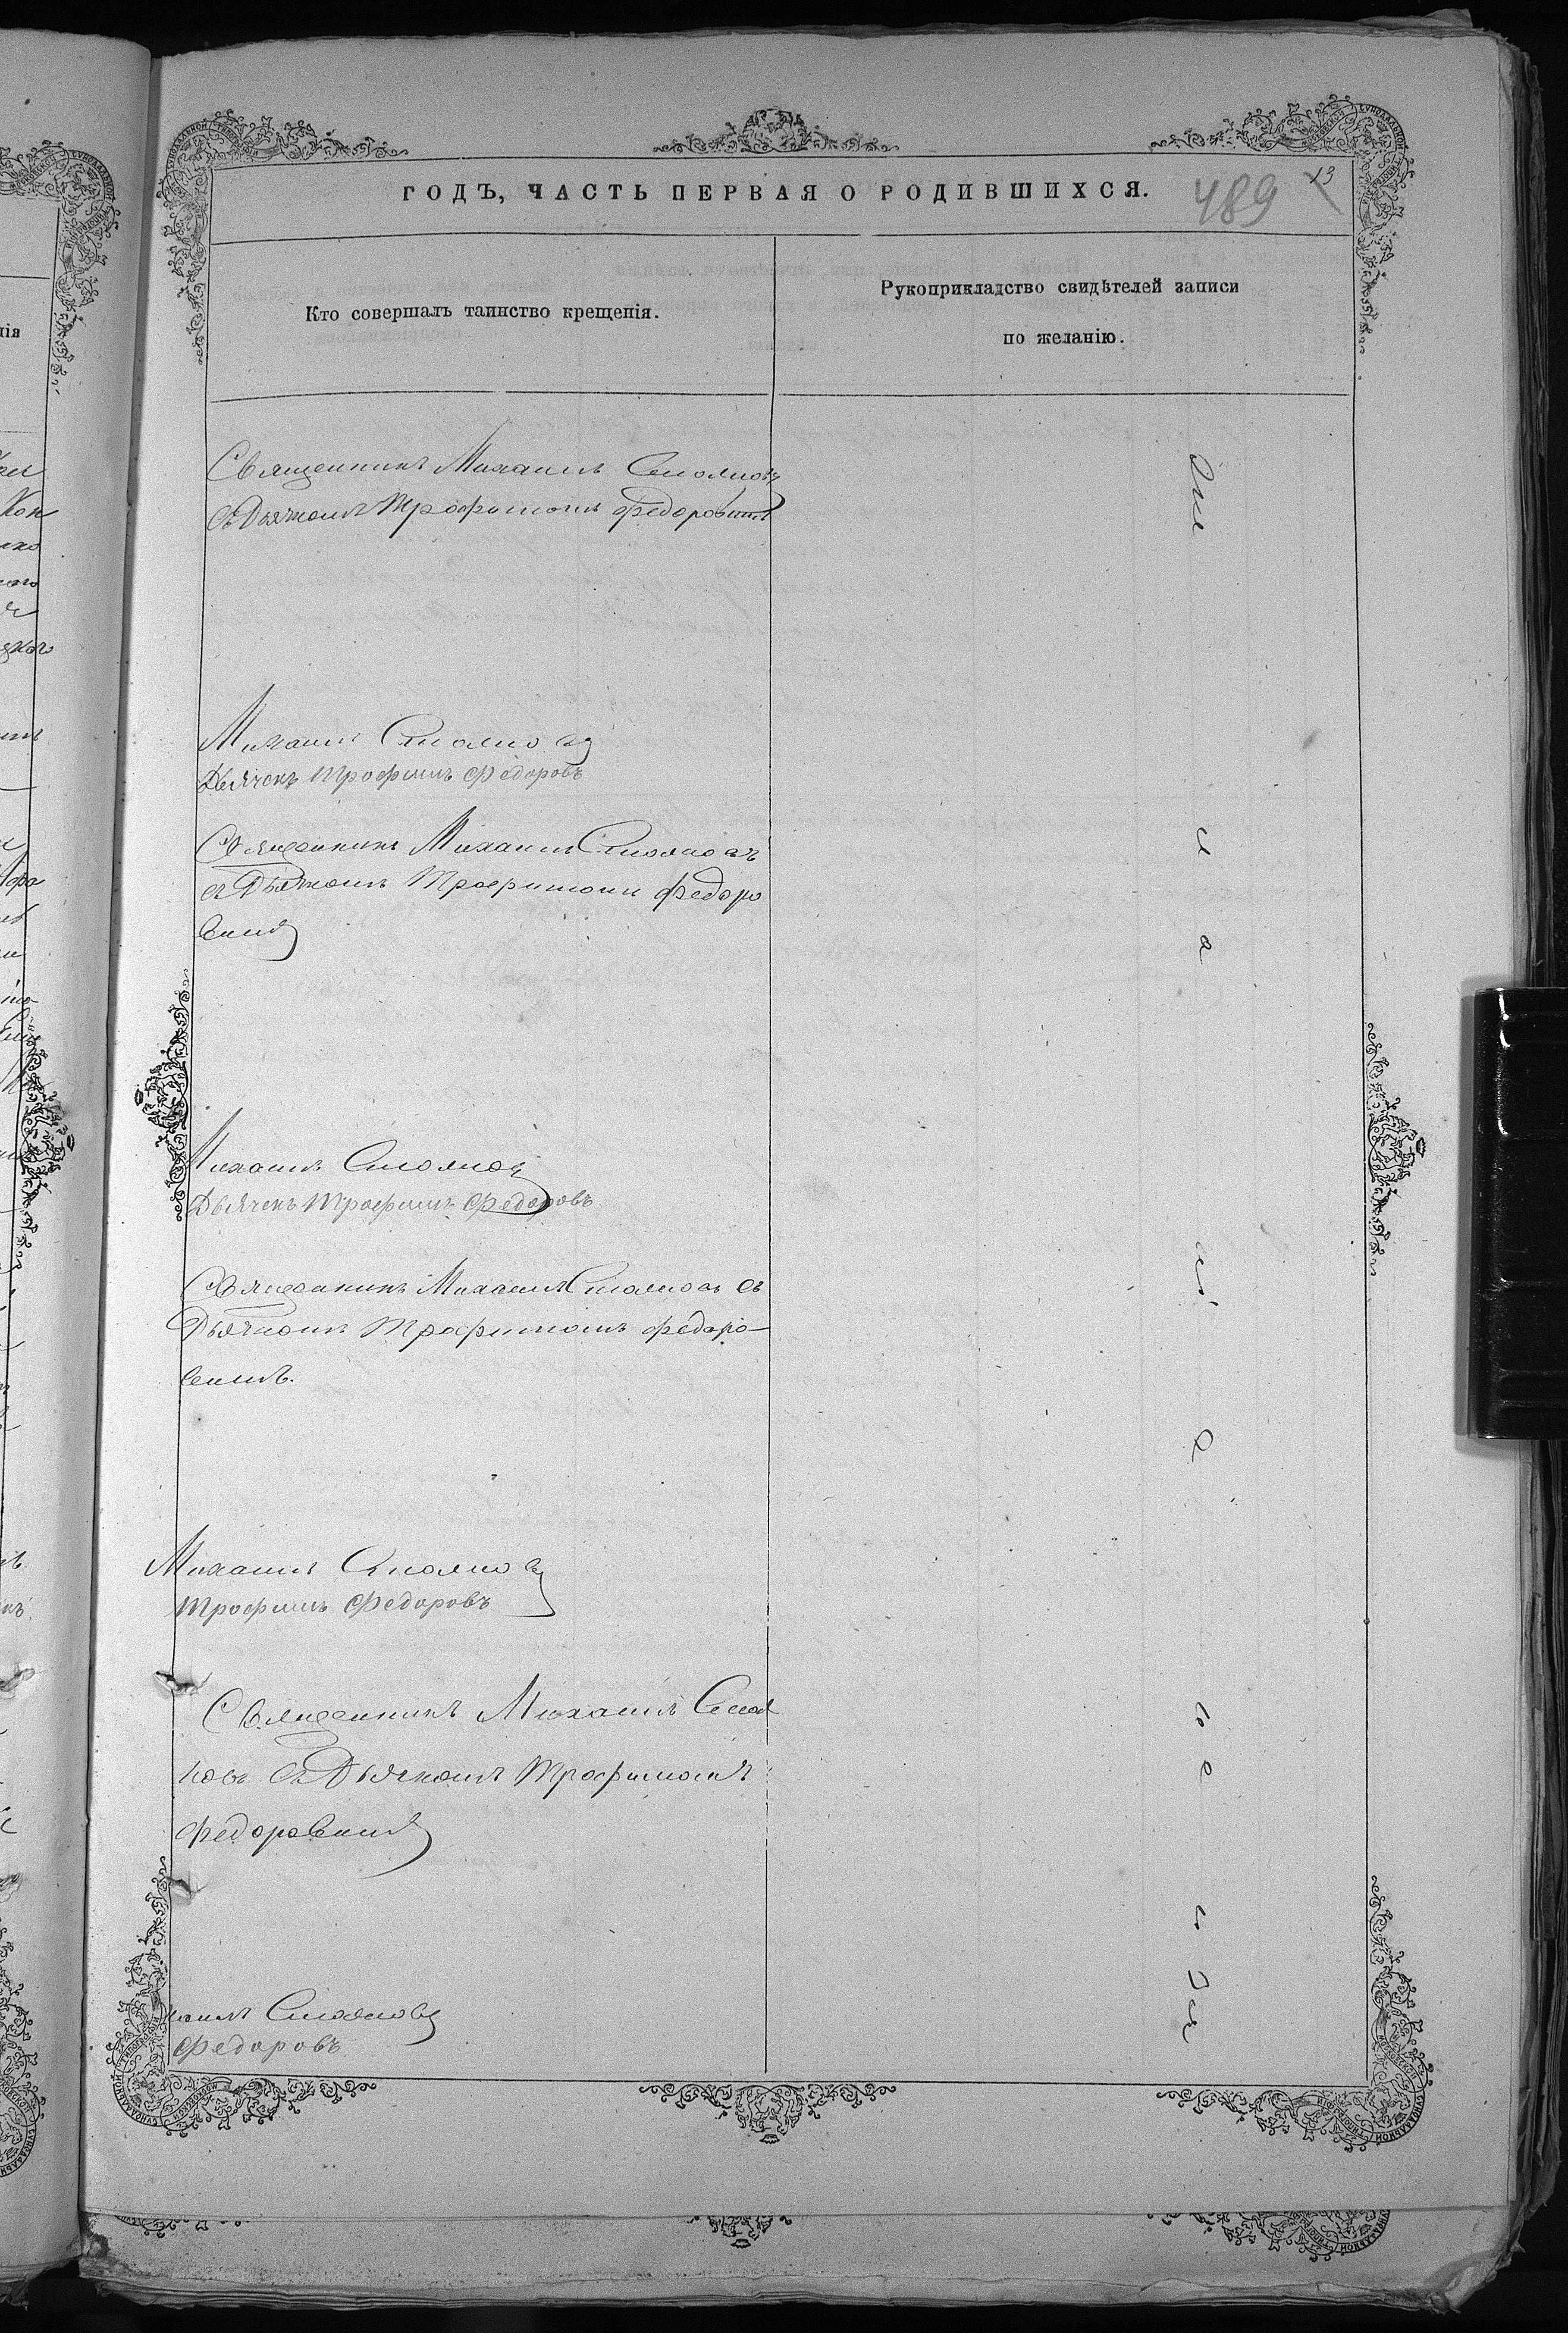 ГОДЪ, ЧАСТЬ ПЕРВАЯ О РОДИВШИХСЯ.
489
13
Кто совершалъ таинство крещенія.
Рукоприкладство свидѣтелей записи
по желанію.
Священникъ Михаилъ Стояновъ
съ Дьячкомъ Трофимомъ Федоровымъ
Михаилъ Стояновъ
Дьячекъ Трофимъ Федоровъ
Священникъ Михаилъ Стояновъ
съ Дьячкомъ Трофимомъ Федоро
вымъ
Михаилъ Стояновъ
Дьячекъ Трофимъ Федоровъ
Священникъ Михаилъ Стояновъ съ
Дьячкомъ Трофимомъ Федоро-
вымъ.
Михаилъ Стояновъ
Трофимъ Федоровъ
Священникъ Михаилъ Стоя
новъ съ Дьячкомъ Трофимомъ
Федоровымъ
хаилъ Стояновъ
Федоровъ